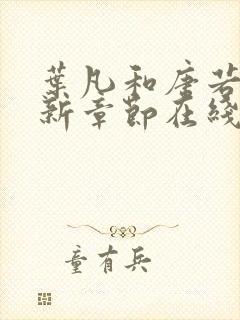 葉凡和唐若
新章節在綫
童有兵